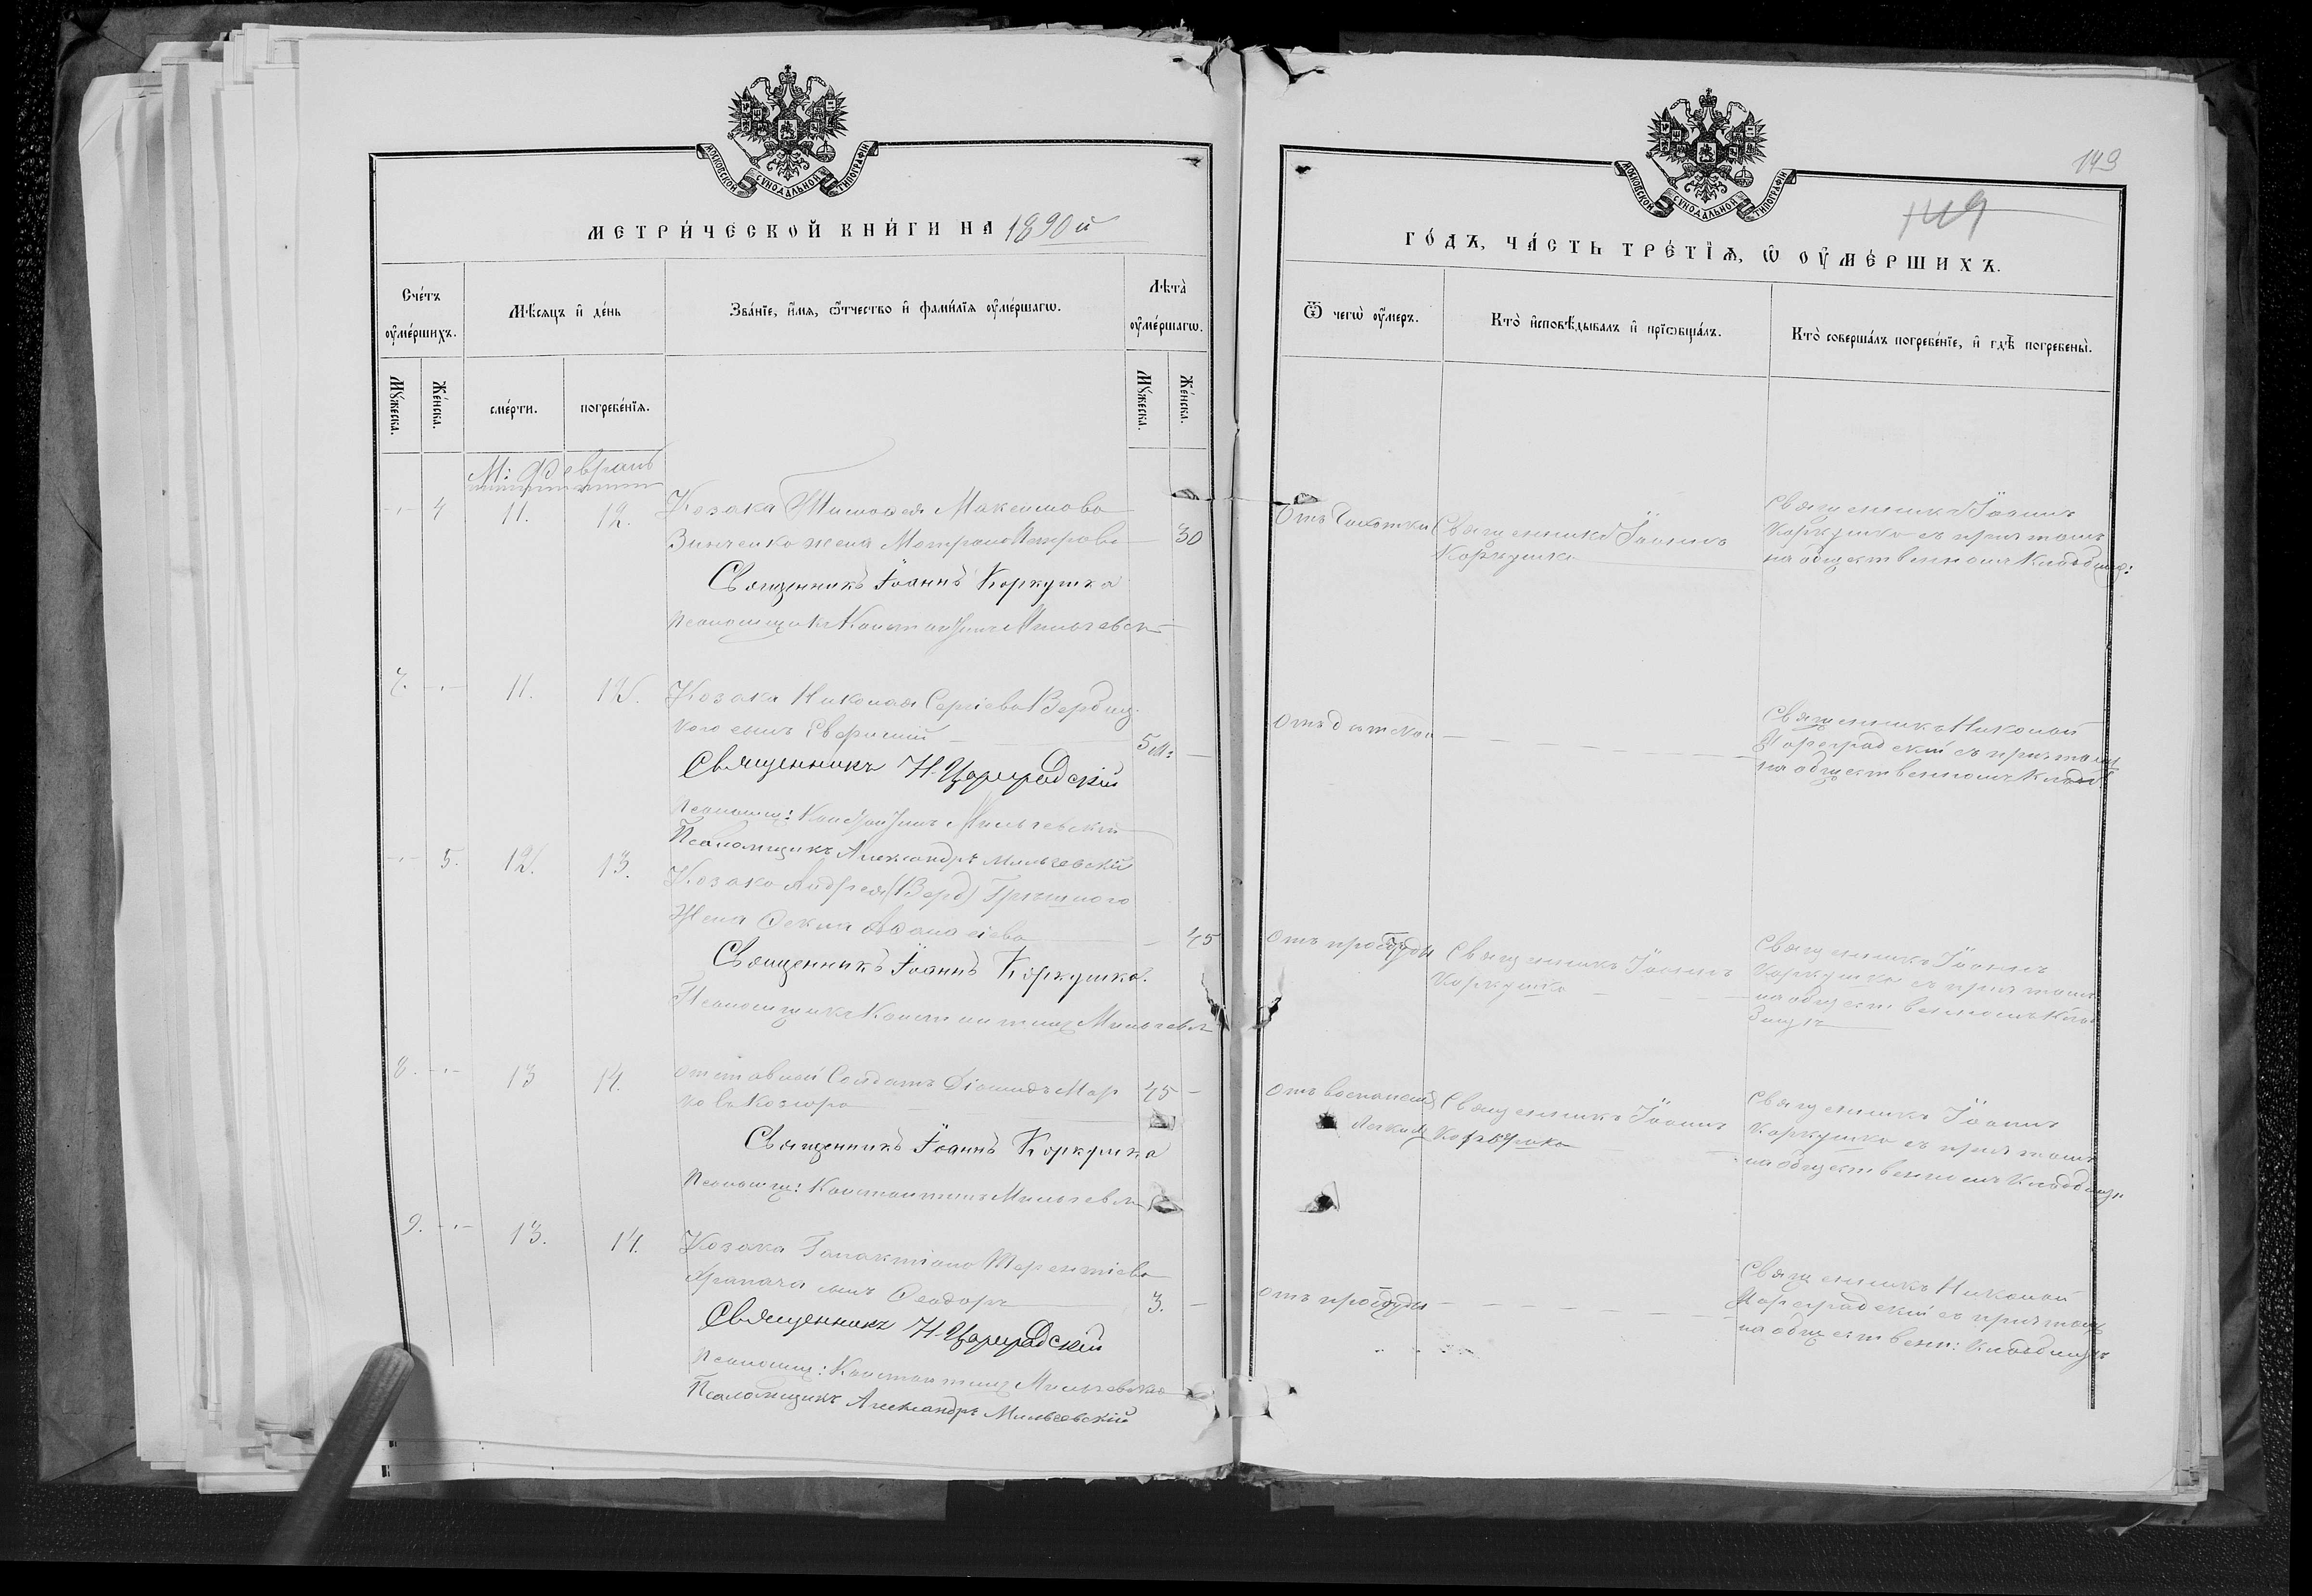 МОСКОВСКОЙ СѴНОДАЛЬНОЙ ТИПОГРАФІИ
МЕТРИ́ЧЕСКОЙ КНИ́ГИ НА 1890й
Сче́тъ ᲂу҆ме́ршихъ.
Мѣ́сяцъ и҆ де́нь
Зва́нїе, и҆́мя, ѻ҆́тчество и҆ фами́лїя ᲂу҆ме́ршагѡ.
Лѣта̀ ᲂу҆ме́ршагѡ.
Мꙋ́жеска.
Же́нска.
сме́рти.
погребе́нїѧ.
Мꙋ́жеска.
Же́нска.
М: Февраль
4 11. 12. Козака Тимофея Максимова
Зинченко жена Матрона Петрова 30
Священникъ Іоаннъ Коркушка
Псаломщикъ Константинъ Мильчевск
7. 11. 12. Козака Николая Сергіева Вербиц
кого сынъ 5 м:
Священникъ Н. Цареградскій
Псаломщ: Константинъ Мильчевскій
Псаломщикъ Александръ Мильчевскій
5. 12. 13. Козака Андрея (Верб)
Жена Ѳекла Аѳанасіева 45
Священникъ Іоаннъ Коркушка.
Псаломщикъ Константинъ Мильчевск
8. 13 14. отставной Солдатъ Діомидъ Мар
ковъ Козюра 45
Священникъ Іоаннъ Коркушка
Псаломщ: Константинъ Мильчевск
9. 13. 14. Козака Галактіона Терентіева
Храпача сынъ Ѳеодоръ 3.
Священникъ Н. Цареградскій
Псаломщ: Константинъ Мильчевскій
Псаломщикъ Александръ Мильчевскій
МОСКОВСКОЙ СѴНОДАЛЬНОЙ ТИПОГРАФІИ
149
ГО́ДЪ, ЧА́СТЬ ТРЕ́ТЇѦ, Ѡ҆ ОУ҆МЕ́РШИХЪ.
Ѿ чегѡ̀ ᲂу҆́меръ.
Кто̀ и҆сповѣ́дывалъ и҆ прїѡбща́лъ.
Кто̀ соверша́лъ погребе́нїе, и҆ гдѣ̀ погребены̀.
Отъ Чахотки Священникъ Іоаннъ
Коркушка
Священникъ Іоаннъ
Коркушка съ причтомъ
на общественномъ Кладбищѣ:
Отъ дѣтской
Священникъ Николай
Цареградскій съ причтомъ
на общественномъ Кладб
Отъ простуды Священникъ Іоаннъ
Коркушка
Священникъ Іоаннъ
Коркушка съ причтомъ
на общественномъ Клад
бищѣ
Отъ воспаленія Священникъ Іоаннъ
Легкихъ Коркушка
Священникъ Іоаннъ
Коркушка съ причтомъ
на общественномъ Кладбищѣ
Отъ простуды
Священникъ Николай
Цареградскій съ причтомъ
на обществен: Кладбищѣ